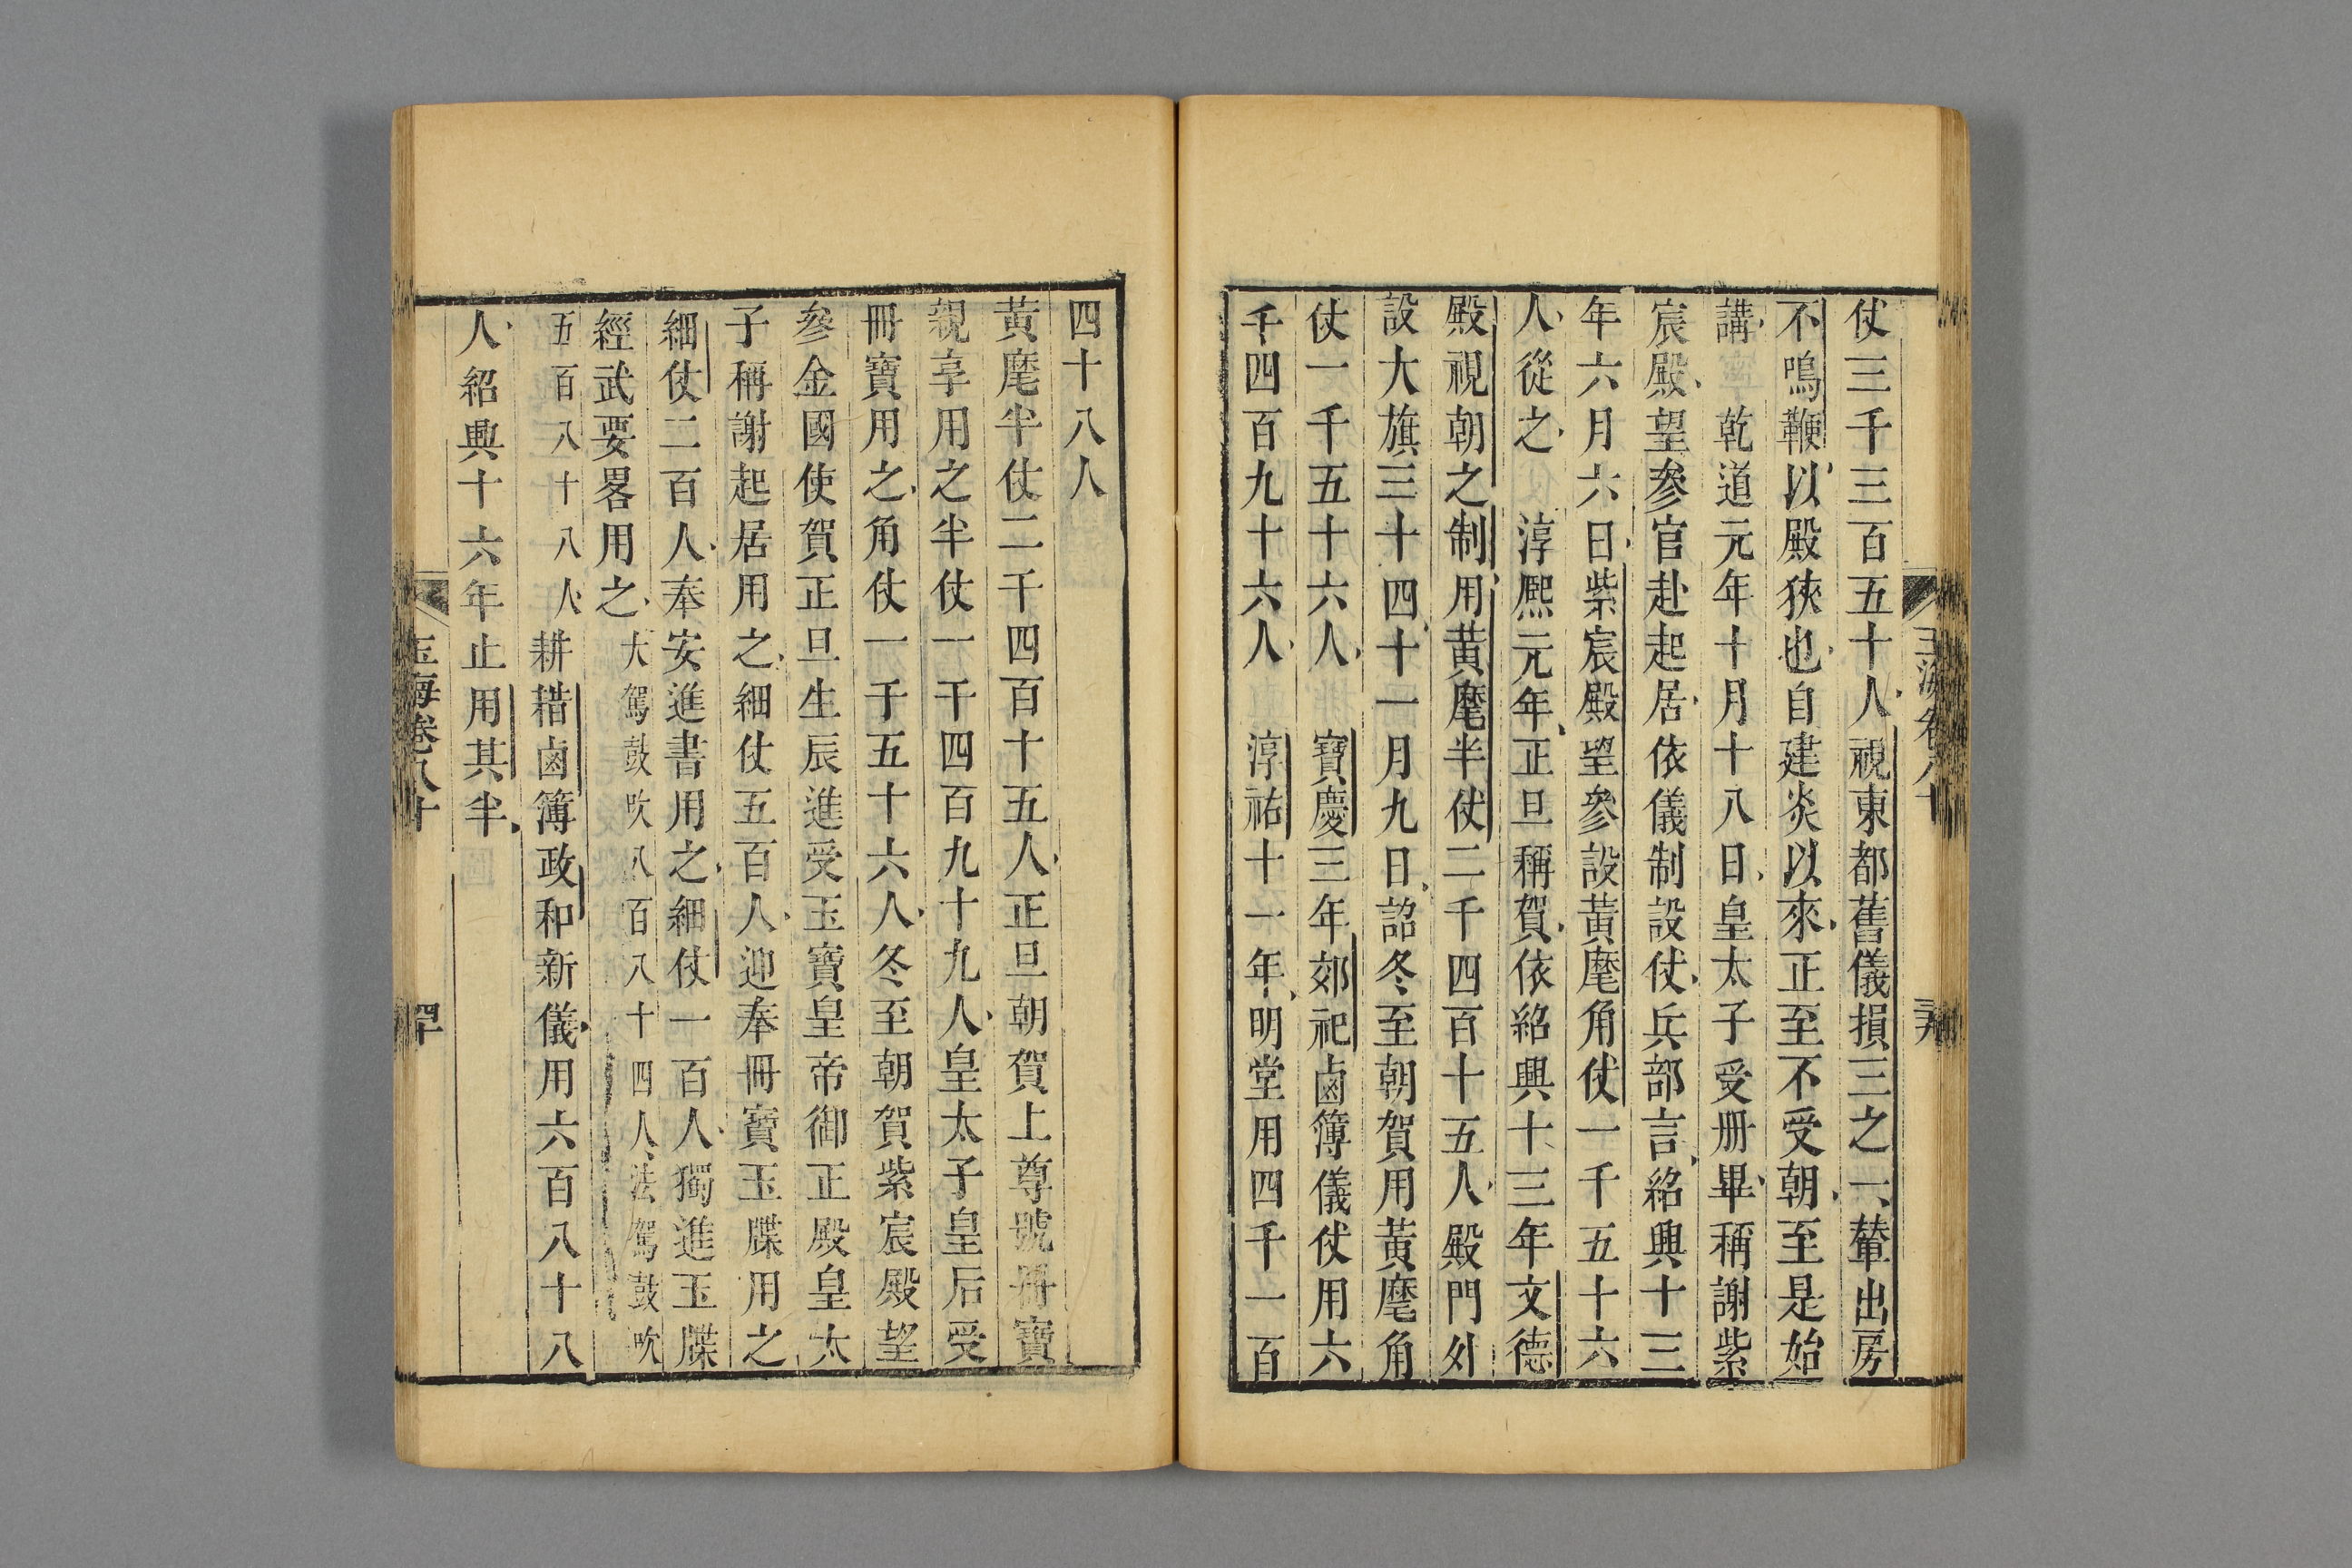 仗三千三百五十人視東都舊儀損三之一輦出房
不鳴鞭以殿狹也自建炎以來正至不受朝至是始
講 乾道元年十月十八日皇太子受册畢稱謝紫
宸殿望參官赴起居依儀制設仗兵部言紹興十三
年六月六日紫宸殿望參設黃麾角仗一千五十六
人從之 淳熙元年正旦稱賀依紹興十三年文德
殿視朝之制用黃麾半仗二千四百十五人殿門外
設大旗三十四十一月九日詔冬至朝賀用黃麾角
仗一千五十六人 寶慶三年郊祀鹵簿儀仗用六
千四百九十六人 淳祐十一年明堂用四千一百
四十八人
黃麾半仗二千四百十五人正旦朝賀上尊號冊寶
親享用之半仗一千四百九十九人皇太子皇后受
冊寶用之角仗一千五十六人冬至朝賀紫宸殿望
參金國使賀正旦生辰進受玉寶皇帝御正殿皇太
子稱謝起居用之細仗五百人迎奉冊寶玉牒用之
細仗二百人奉安進書用之細仗一百人獨進玉牒
經武要畧用之大駕鼓吹八百八十四人法駕鼓吹
五百八十八人耕耤鹵簿政和新儀用六百八十八
人紹興十六年止用其半
玉海卷八十
四十